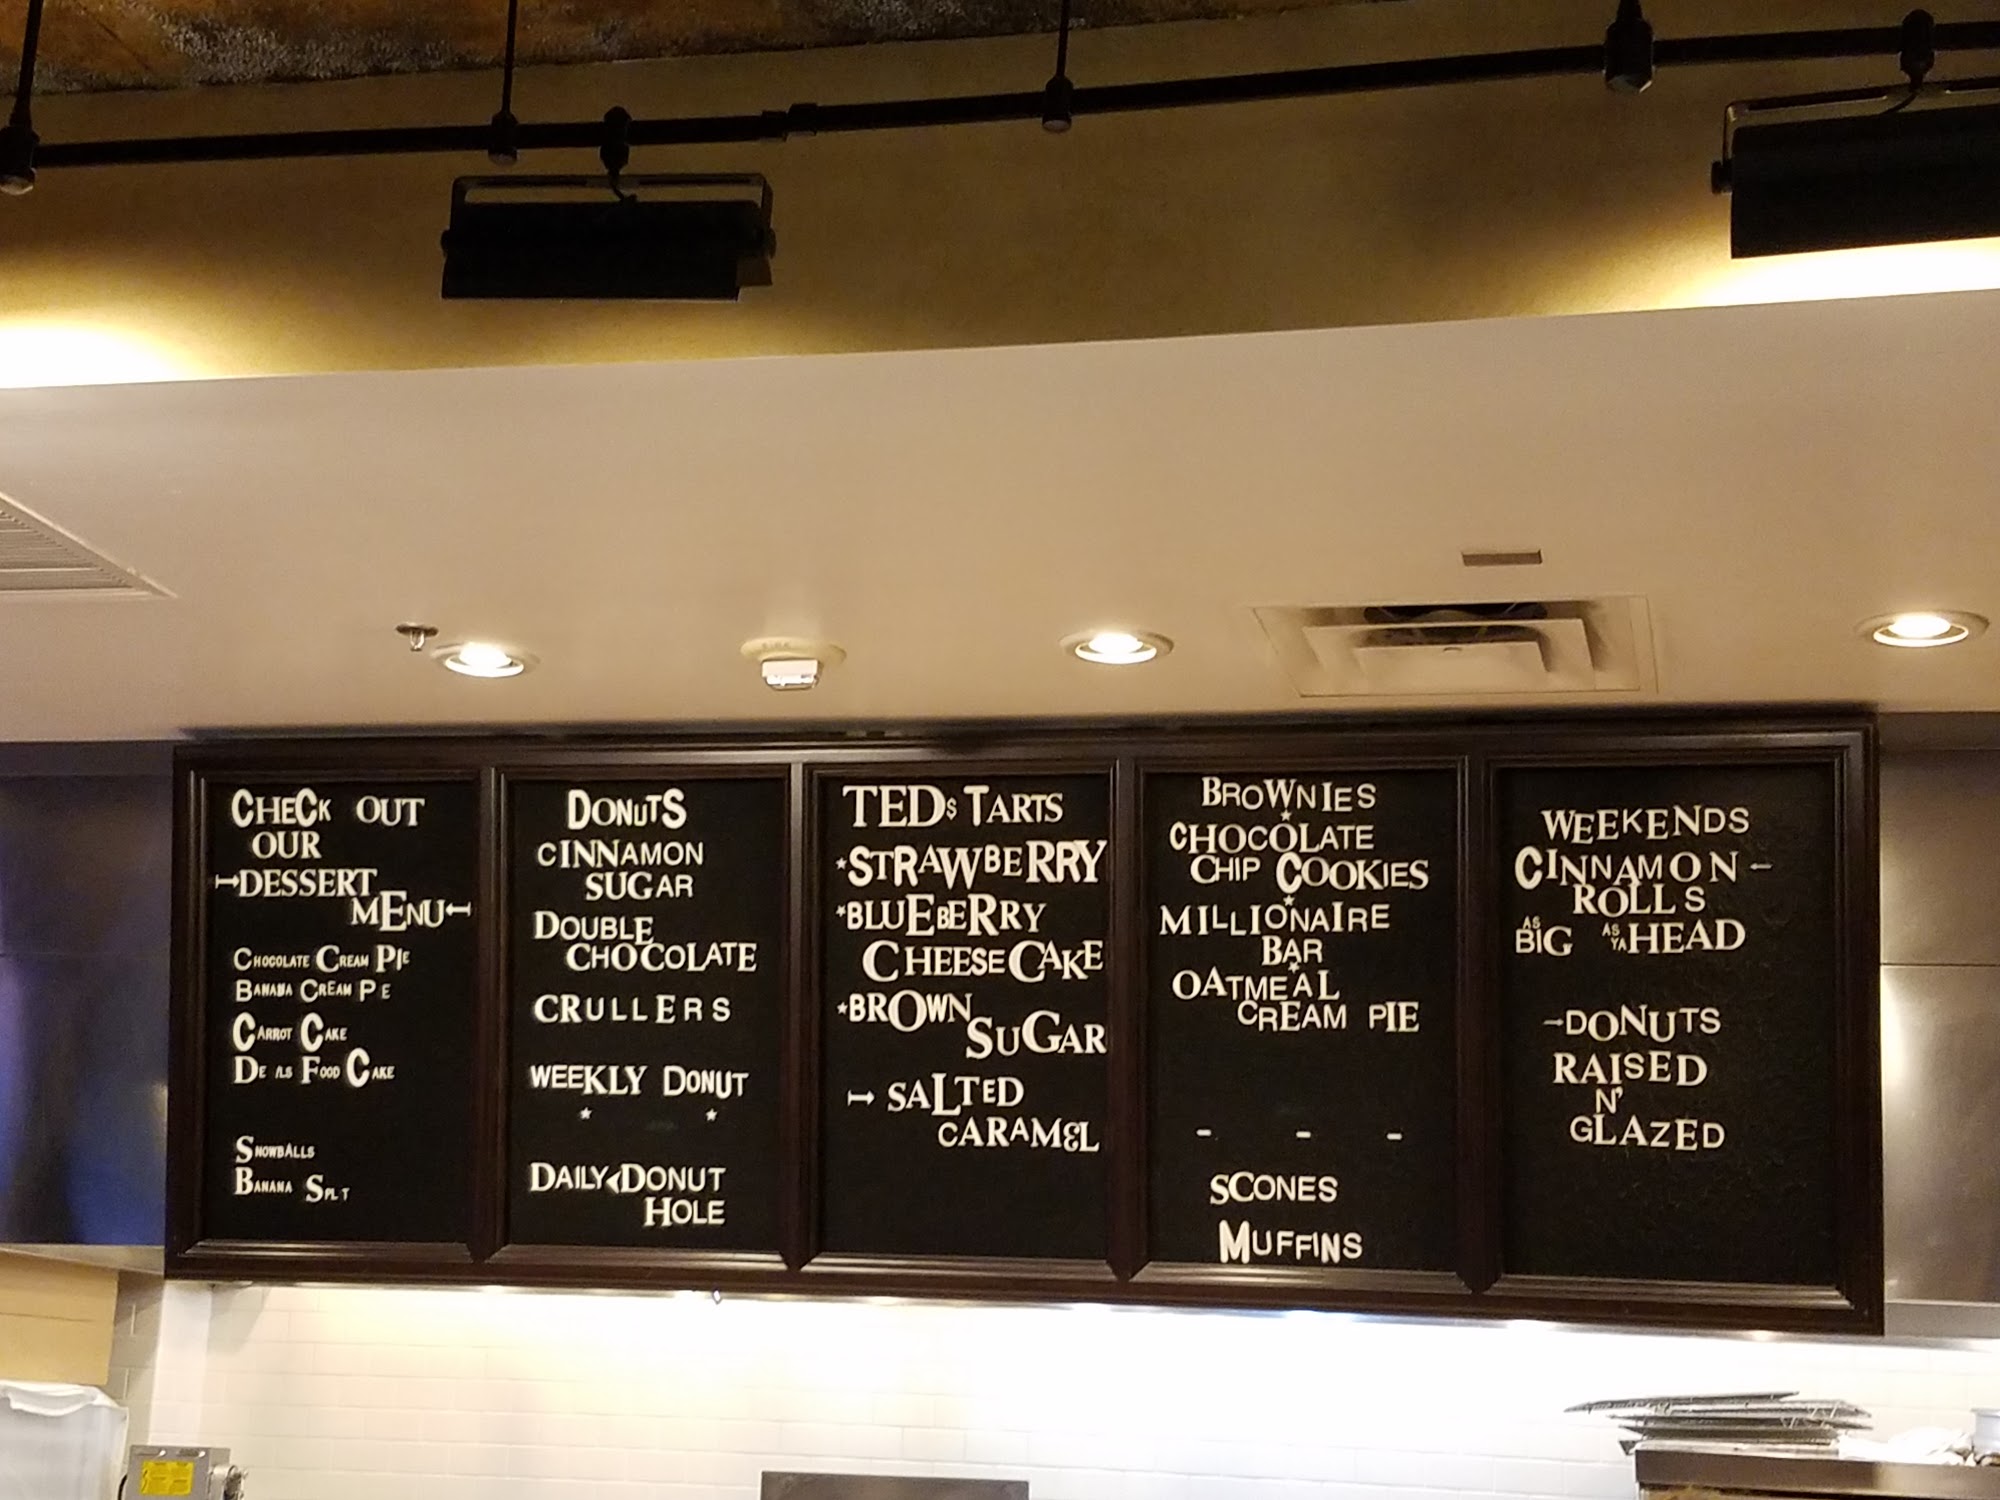 CHECK OUT
OUR
DESSERT
MENU
CHOCOLATE CREAM PIE
BANANA CREAM P E
CARROT CAKE
DE ILS FOOD CAKE
SNOWBALLS
BANANA SPL T
DONUTS
CINNAMON
SUGAR
DOUBLE
CHOCOLATE
CRULLERS
WEEKLY DONUT
* *
DAILY DONUT
HOLE
TEDS TARTS
*STRAWBERRY
*BLUEBERRY
CHEESECAKE
*BROWN
SUGAR
SALTED
CARAMEL
BROWNIES
*
CHOCOLATE
CHIP COOKIES
*
MILLIONAIRE
BAR
*
OATMEAL
CREAM PIE
- - -
SCONES
MUFFINS
WEEKENDS
CINNAMON-
ROLLS
AS BIG AS YA HEAD
-DONUTS
RAISED
N'
GLAZED